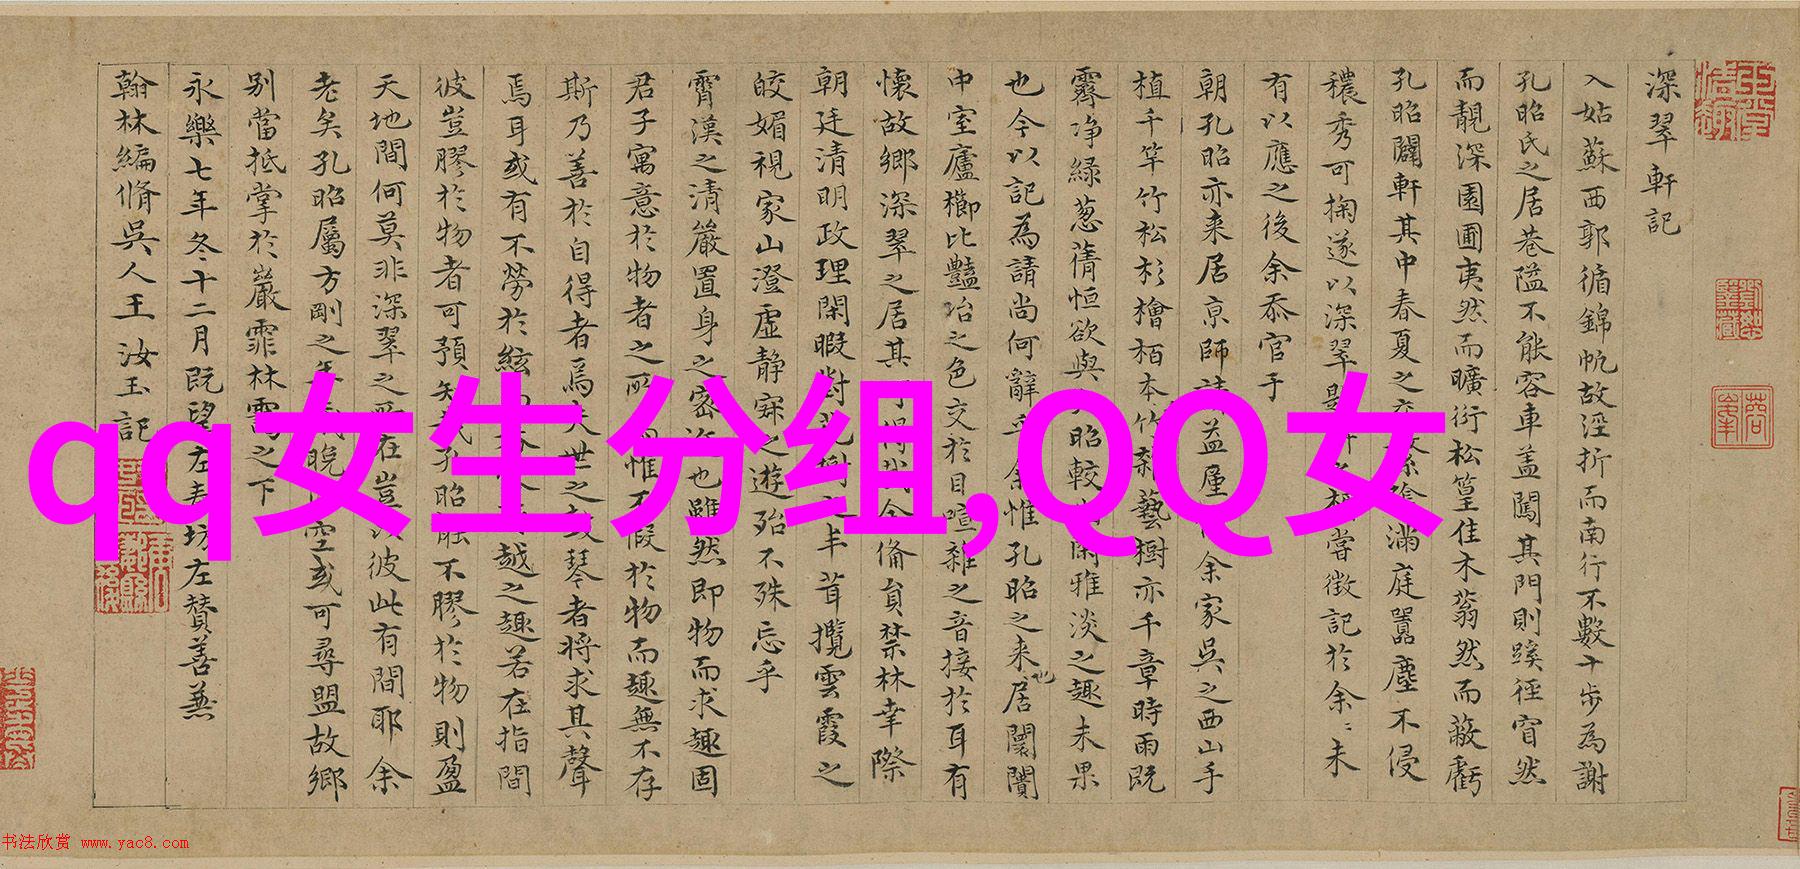 深翠軒記
入姑蘇西郭循錦帆故涇折而南行不數十步為謝
孔昭氏之居巷隘不能容車蓋闖其門則蹊徑窅然
而靚深園圃夷然而曠衍松篁佳木蓊然而蔽虧
孔昭闢軒其中春夏之交繁陰滿庭囂塵不侵
穠秀可掬遂以深翠嘗徵記於余余未
有以應之後余忝官于
朝孔昭亦来居京師益廑余家吳之西山手
植千竿竹松杉檜栢本竹藝樹亦千章時雨既
霽净緑葱蒨恒欲與昭較閑雅淡之趣未果
也今以記為請尚何辭乎余惟孔昭之来居也闤闠
中室廬櫛比豔冶之色交於目喧雜之音接於耳有
懷故鄉深翠之居其今備員禁林幸際
朝廷清明政理閑暇對之半茸攬雲霞之
皎媚視家山澄虚静寐之遊殆不殊忘乎
霄漢之清嚴置身之密也雖然即物而求趣固
君子寓意於物者之所惟不假於物而趣無不存
斯乃善於自得者焉夫世之鼓琴者將求其聲
焉耳或有不勞於絃越之趣若在指間
彼豈膠於物者可預知孔昭能不膠於物則盈
天地間何莫非深翠之所在豈彼此有間耶余
老矣孔昭屬方剛之年晚可尋盟故鄉
别當抵掌於巖霏林靄之下
永樂七年冬十二月既望左春坊左贊善兼
翰林編脩吳人王汝玉記
qq女生分组,QQ女
书法欣赏 www.yac8.com